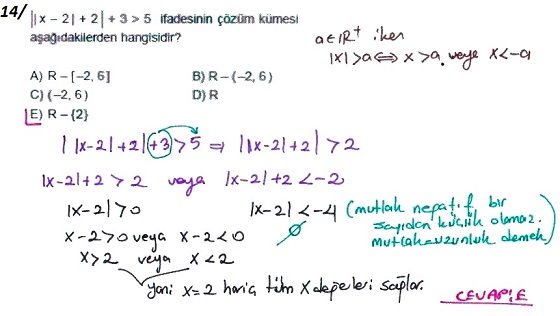 14/ ||x – 2| + 2| + 3 > 5 ifadesinin çözüm kümesi
aşağıdakilerden hangisidir?
a∈ℝ⁺ iken
|x|>a ⟺ x>a veya x<-a
A) R – [–2, 6] B) R – (–2, 6)
C) (–2, 6) D) R
E) R – {2}
||x-2|+2|+3>5 ⇒ ||x-2|+2|>2
|x-2|+2>2 veya |x-2|+2<-2
|x-2|>0 |x-2|<-4 (mutlak negatif bir
sayıdan küçük olamaz.
mutlak=uzunluk demek)
∅
x-2>0 veya x-2<0
x>2 veya x<2
yani x=2 hariç tüm x değerleri sağlar.
CEVAP: E